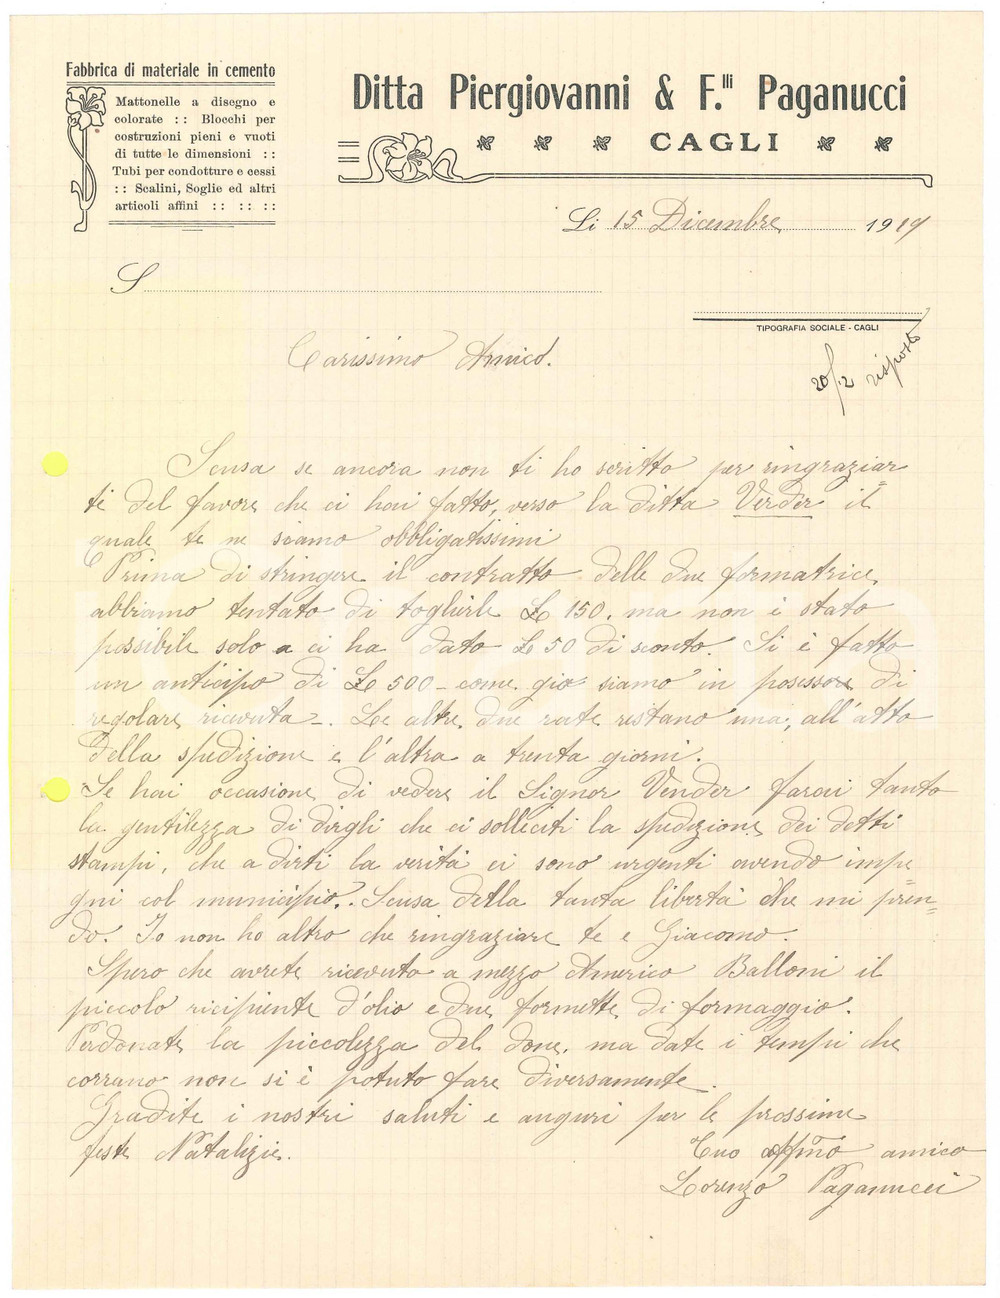 Fabbrica di materiale in cemento
Mattonelle a disegno e
colorate :: Blocchi per
costruzioni pieni e vuoti
di tutte le dimensioni ::
Tubi per condotture e cessi
:: Scalini, Soglie ed altri
articoli affini :: :: ::
Ditta Piergiovanni & F.lli Paganucci
CAGLI
Li 15 Dicembre 1919
S
TIPOGRAFIA SOCIALE - CAGLI
20/12 risposto
Carissimo Amico.
Scusa se ancora non ti ho scritto per ringraziar=
ti del favore che ci hai fatto, verso la ditta Verder il
quale te ne siamo obbligatissimi
Prima di stringere il contratto delle due formatrice,
abbiamo tentato di toglierle £ 150. ma non è stato
possibile solo a ci ha dato £ 50 di sconto. Si è fatto
un anticipo di £ 500 - come gio siamo in posessore di
regolare ricevuta -. Le altre due rate restano una, all'atto
della spedizione e l'altra a trenta giorni.
Se hai occasione di vedere il Signor Vender farai tanto
la gentilezza di dirgli che ci solleciti la spedizione dei detti
stampi, che a dirti la verità ci sono urgenti avendo impe=
gni col municipio. Scusa della tanta libertà che mi pren=
do. Io non ho altro che ringraziare te e Giacomo.
Spero che avrete ricevuto a mezzo Americo Balloni il
piccolo ricipiente d'olio e due formette di formaggio.
Perdonate la piccolezza del done, ma date i tempi che
corrano non si è potuto fare diversamente.
Gradite i nostri saluti e auguri per le prossime
feste Natalizie.
Tuo affmo amico
Lorenzo Paganucci